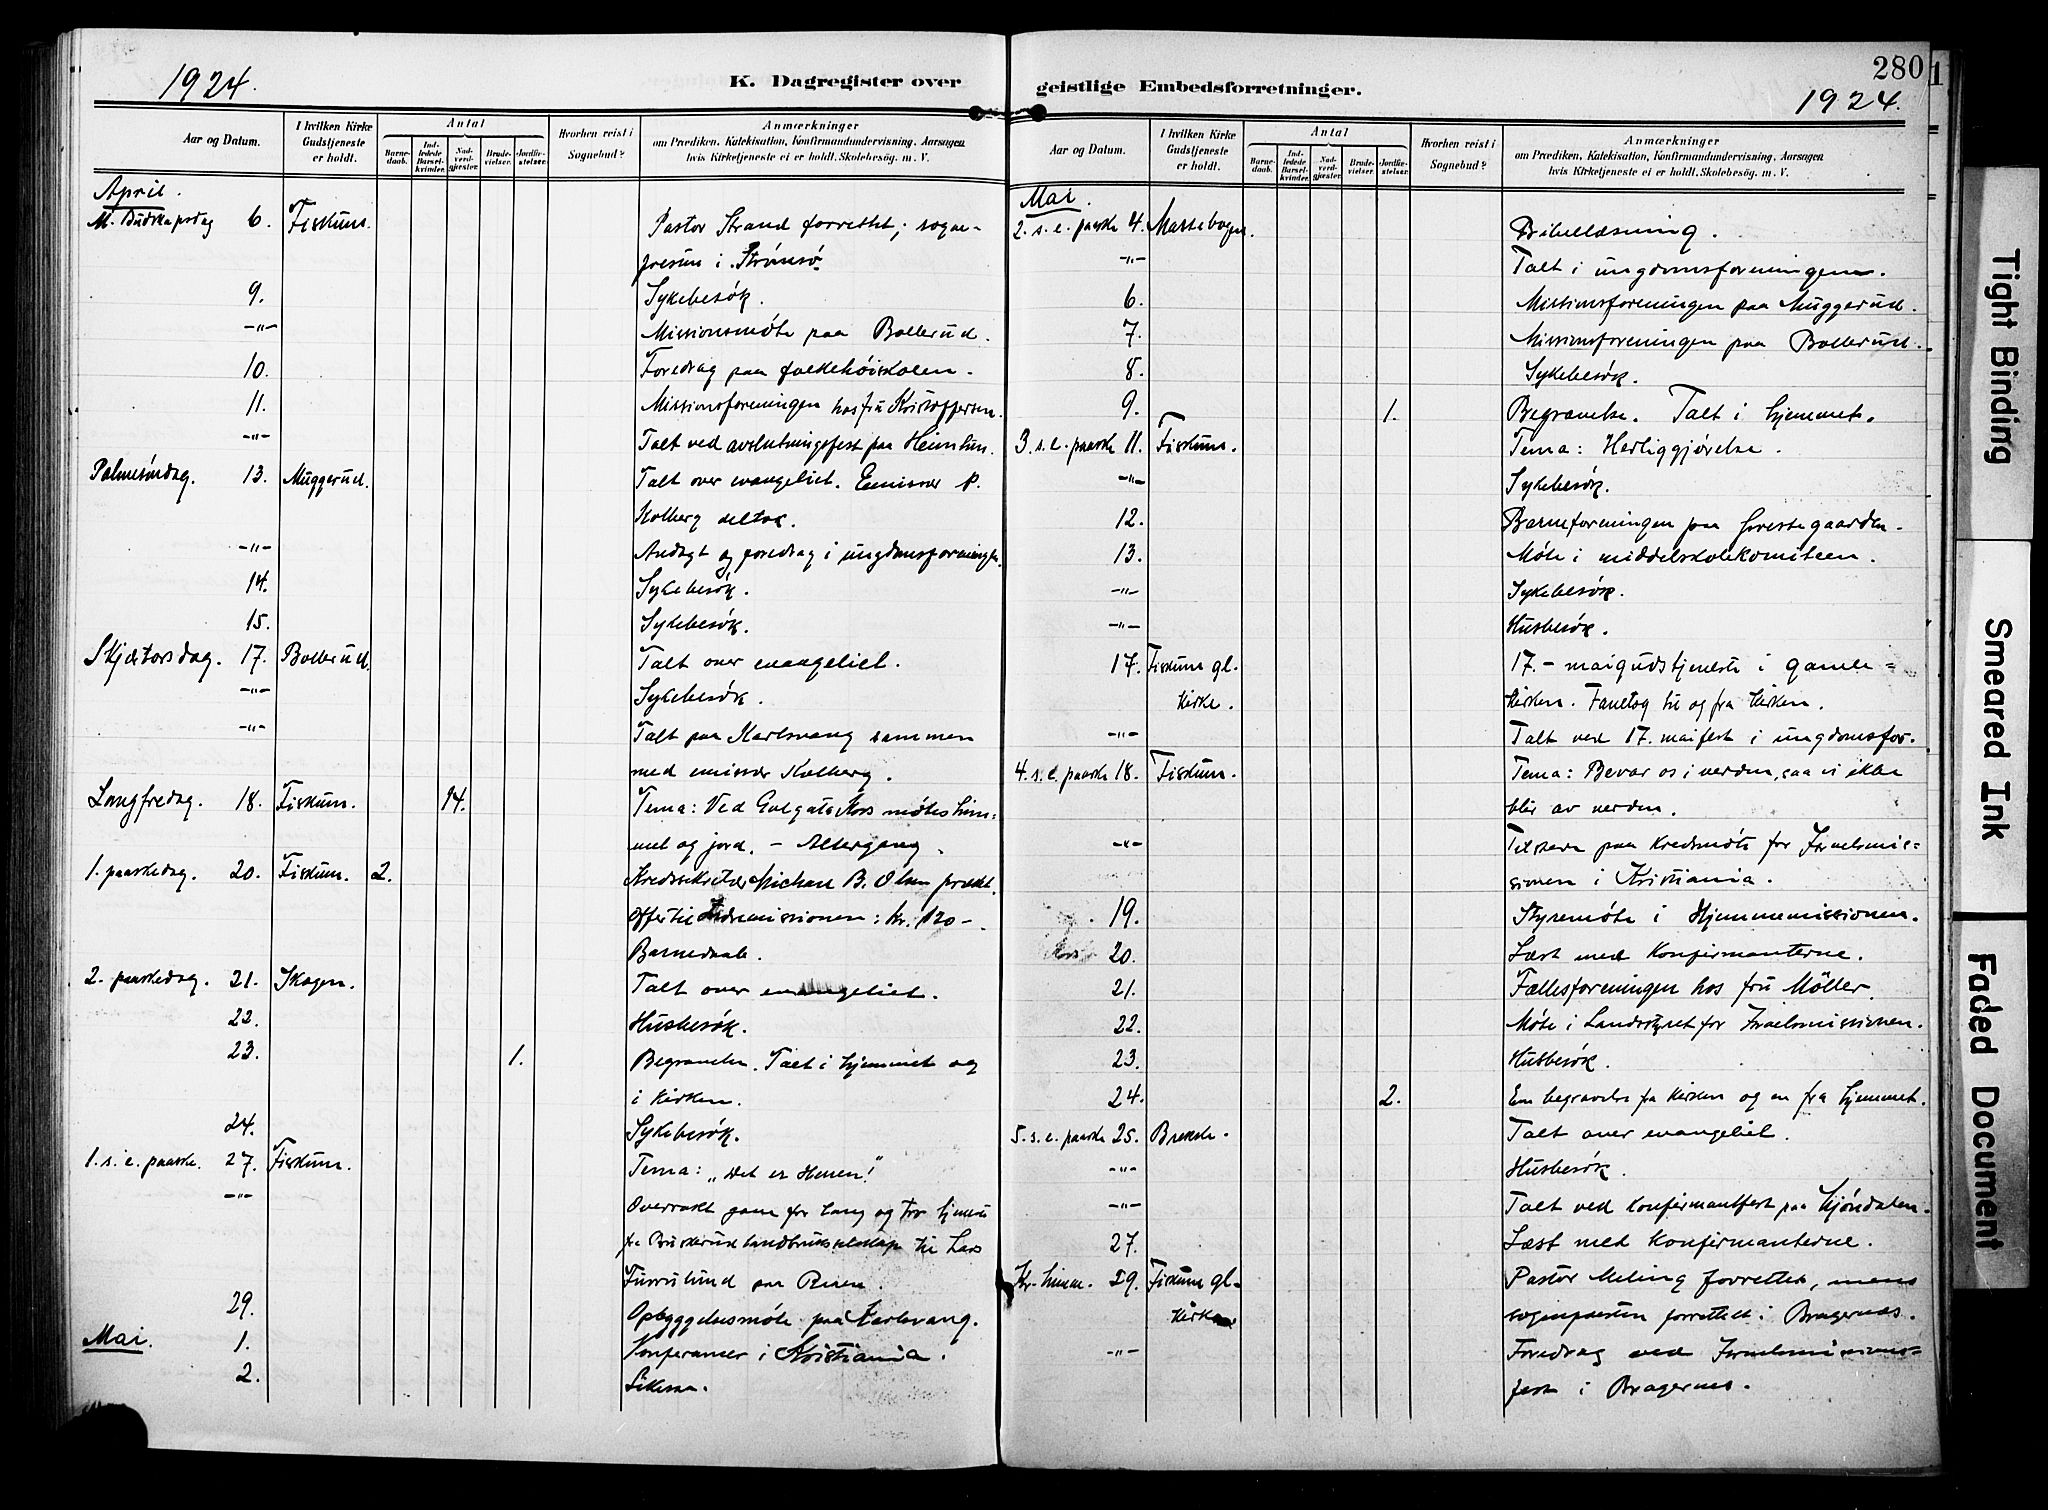 1924.
K. Dagregister over
Aar og Datum.
I hvilken Kirke Gudstjeneste er holdt.
Antal
Barnedaab.
Indledede Barselkvinder.
Nadverdgjæster.
Brudevielser.
Jordfæstelser.
Hvorhen reist i Sognebud?
Anmærkninger
om Prædiken, Katekisation, Konfirmandundervisning, Aarsagen
hvis Kirketjeneste ei er holdt, Skolebesøg, m. V.
April.
M. Budskapsdag 6. Fiskum. Pastor Strand forrettet; sogne-
presten i Strømsø.
9. Sykebesøk.
-"- Missionsmøte paa Bollerud.
10. Foredrag paa folkehøiskolen.
11. Missionsforeningen hos fru Kristoffersen.
-"- Talt ved avslutningsfest paa Heimtun.
Palmesøndag. 13. Muggerud. Talt over evangeliet. Emissær P.
Kolberg deltok.
-"- Andagt og foredrag i ungdomsforeningen.
14. Sykebesøk.
15. Sykebesøk.
Skjærtorsdag. 17. Bollerud. Talt over evangeliet.
-"- Sykebesøk.
-"- Talt paa Karlsvang sammen
med emissær Kolberg.
Langfredag. 18. Fiskum. 14. Tema: Ved Golgata Kors møtes him-
mel og jord. - Altergang.
1. paaskedag. 20. Fiskum. 2. Kredssekretær Michael B. Olsen prækt.
Offer til Indremissionen: Kr. 120-.
Barnedaab.
2. paaskedag. 21. Skogen. Talt over evangeliet.
22. Husbesøk.
23. 1. Begravelse. Talt i hjemmet og
i kirken.
24. Sykebesøk.
1. s. e. paaske. 27. Fiskum. Tema: "Det er Herren!"
-"- Overrakt gave for lang og tro tjeneste
fra Buskerud landbruksselskap til Lars
Furulund paa
29. Opbyggelsesmøte paa Karlsvang.
Mai. 1. Konferanser i Kristiania.
2. Likesaa.
280
geistlige Embedsforretninger.
1924.
Aar og Datum.
I hvilken Kirke Gudstjeneste er holdt.
Antal
Barnedaab.
Indledede Barselkvinder.
Nadverdgjæster.
Brudevielser.
Jordfæstelser.
Hvorhen reist i Sognebud?
Anmærkninger
om Prædiken, Katekisation, Konfirmandundervisning, Aarsagen
hvis Kirketjeneste ei er holdt, Skolebesøg, m. V.
Mai.
2. s. e. paaske 4. Massebogen. Bibellæsning.
-"- Talt i ungdomsforeningen.
6. Missionsforeningen paa Muggerud.
7. Missionsforeningen paa Bollerud.
8. Sykebesøk.
9. 1. Begravelse. Talt i hjemmet.
3. s. e. paaske 11. Fiskum. Tema: Herliggjørelse.
-"- Sykebesøk.
12. Barneforeningen paa Prestegaarden.
13. Møte i middelskolekomiteen.
-"- Sykebesøk.
-"- Husbesøk.
17. Fiskum gl. 17.-maigudstjeneste i gamle-
kirke. kirken. Fanetog til og fra kirken.
-"- Talt ved 17. maifest i ungdomsfor.
4. s. e. paaske 18. Fiskum. Tema: Bevar os i verden, saa vi ikke
blir av verden.
-"- Tilstede paa kredsmøte for Israelsmis-
sionen i Kristiania.
19. Styremøte i Hjemmemissionen.
20. Læst med konfirmanterne.
21. Fællesforeningen hos fru Möller.
22. Møte i Landsstyret for Israelsmissionen.
23. Husbesøk.
24. 2. En begravelse fra kirken og en fra hjemmet.
5. s. e. paaske 25. Brekke. Talt over evangeliet.
-"- Husbesøk.
-"- Talt ved konfirmantfest paa Mjøndalen.
27. Læst med konfirmanterne.
Kr. himm. 29. Fiskum gl- Pastor Meling forrettet, mens
kirke sognepresten forrettet i Bragernes.
-"- Foredrag ved Israelsmissions-
fest i Bragernes.
Tight Binding
Smeared Ink
Faded Document